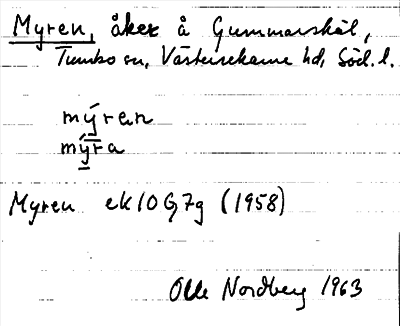 Myren, åker å Gummarskäl,
Tumbo sn, Västerrekarne hd, Söd. l.
mýran
mýra
Myren ek 10 G7g (1958)
Olle Nordberg 1963